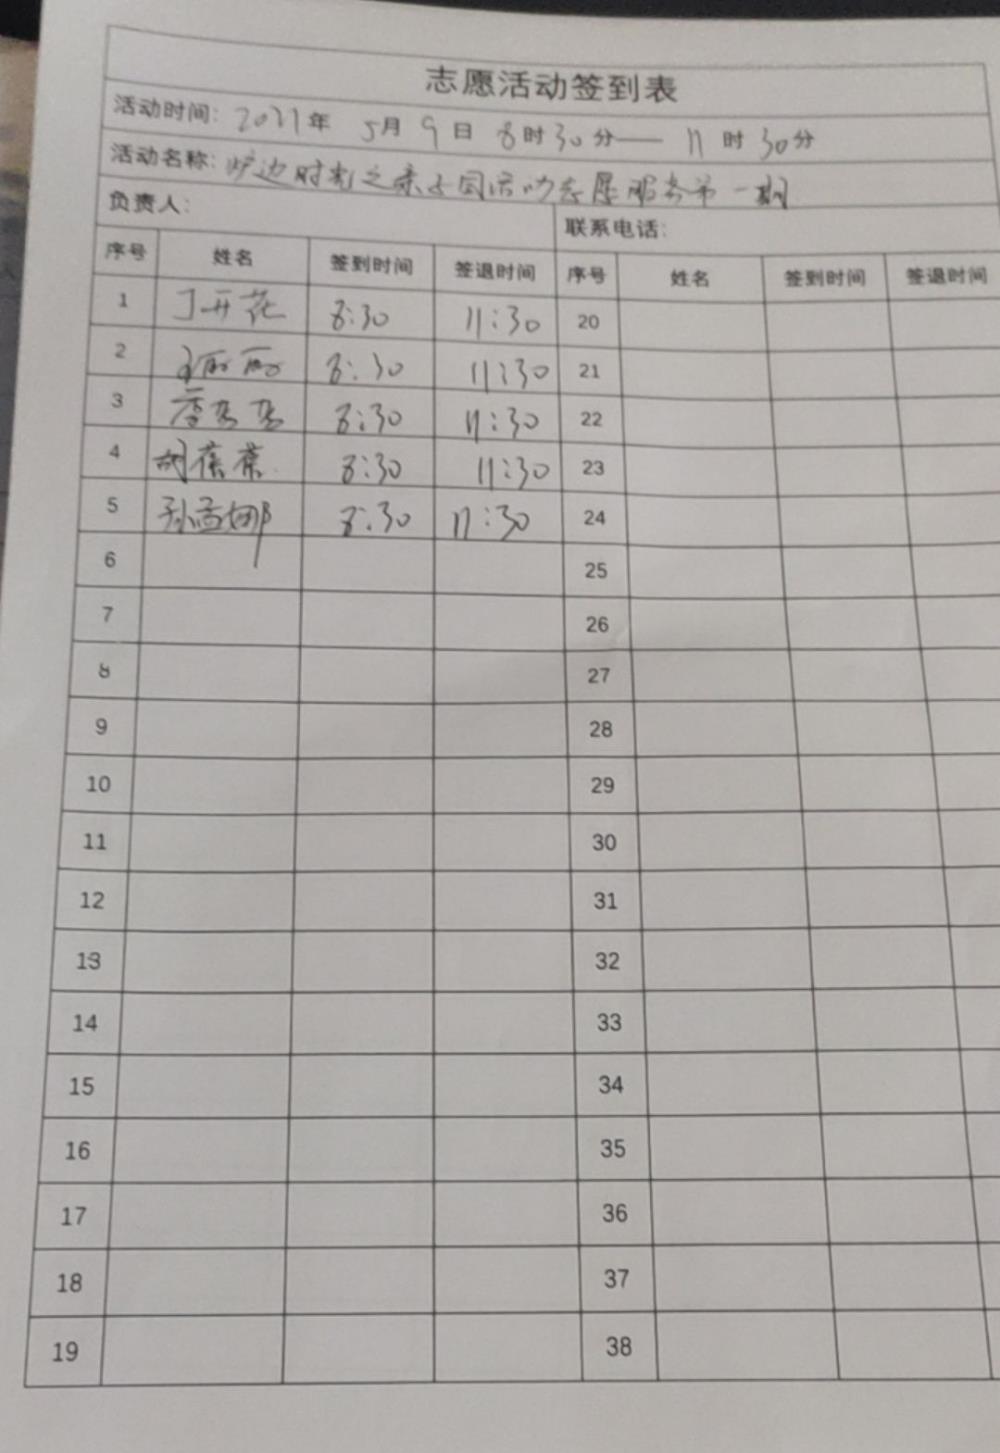 志愿活动签到表
活动时间: 2021年 5月 9日 8时30分— 11时30分
活动名称: 炉边时光之亲子园活动志愿服务第一期
负责人: 联系电话:
序号 姓名 签到时间 签退时间 序号 姓名 签到时间 签退时间
1 丁开花 8:30 11:30 20
2 丽丽 8:30 11:30 21
3 李 8:30 11:30 22
4 胡葆葆 8:30 11:30 23
5 孙孟娜 8:30 11:30 24
6 25
7 26
8 27
9 28
10 29
11 30
12 31
13 32
14 33
15 34
16 35
17 36
18 37
19 38